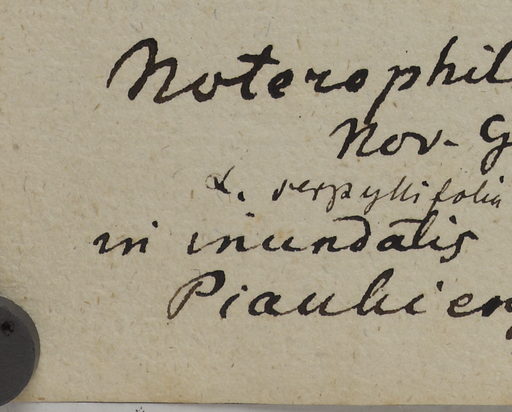 Noterophil
Nov. G
α. serpyllifolia
in inundatis
Piauhien